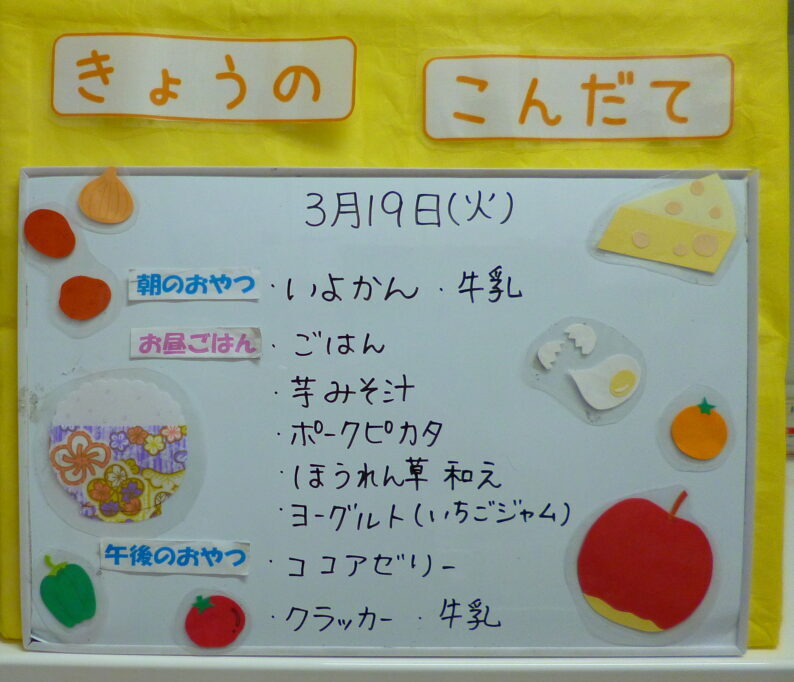 きょうの こんだて
3月19日(火)
朝のおやつ ・いよかん ・牛乳
お昼ごはん ・ごはん
・芋みそ汁
・ポークピカタ
・ほうれん草 和え
・ヨーグルト(いちごジャム)
午後のおやつ ・ココアゼリー
・クラッカー ・牛乳